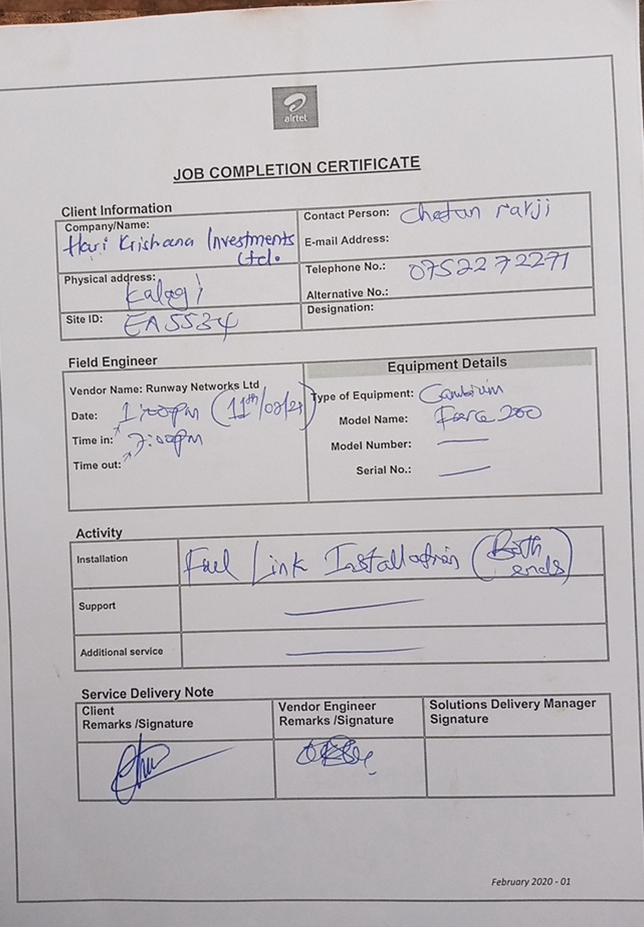 airtel
JOB COMPLETION CERTIFICATE
Client Information
Company/Name:
Hari Krishana Investments
Ltd.
Contact Person: Chetan ravji
E-mail Address:
Physical address:
Kalagi
Telephone No.: 0752272271
Alternative No.:
Site ID: EA5534
Designation:
Field Engineer
Equipment Details
Vendor Name: Runway Networks Ltd
Date: 1:00pm (11th/08/
Time in: 7:00pm
Time out:
Type of Equipment: Cambium
Model Name: Force 200
Model Number:
Serial No.:
Activity
Installation
Full Link Installation (Both
ends)
Support
Additional service
Service Delivery Note
Client
Remarks /Signature
Vendor Engineer
Remarks /Signature
Solutions Delivery Manager
Signature
February 2020 - 01